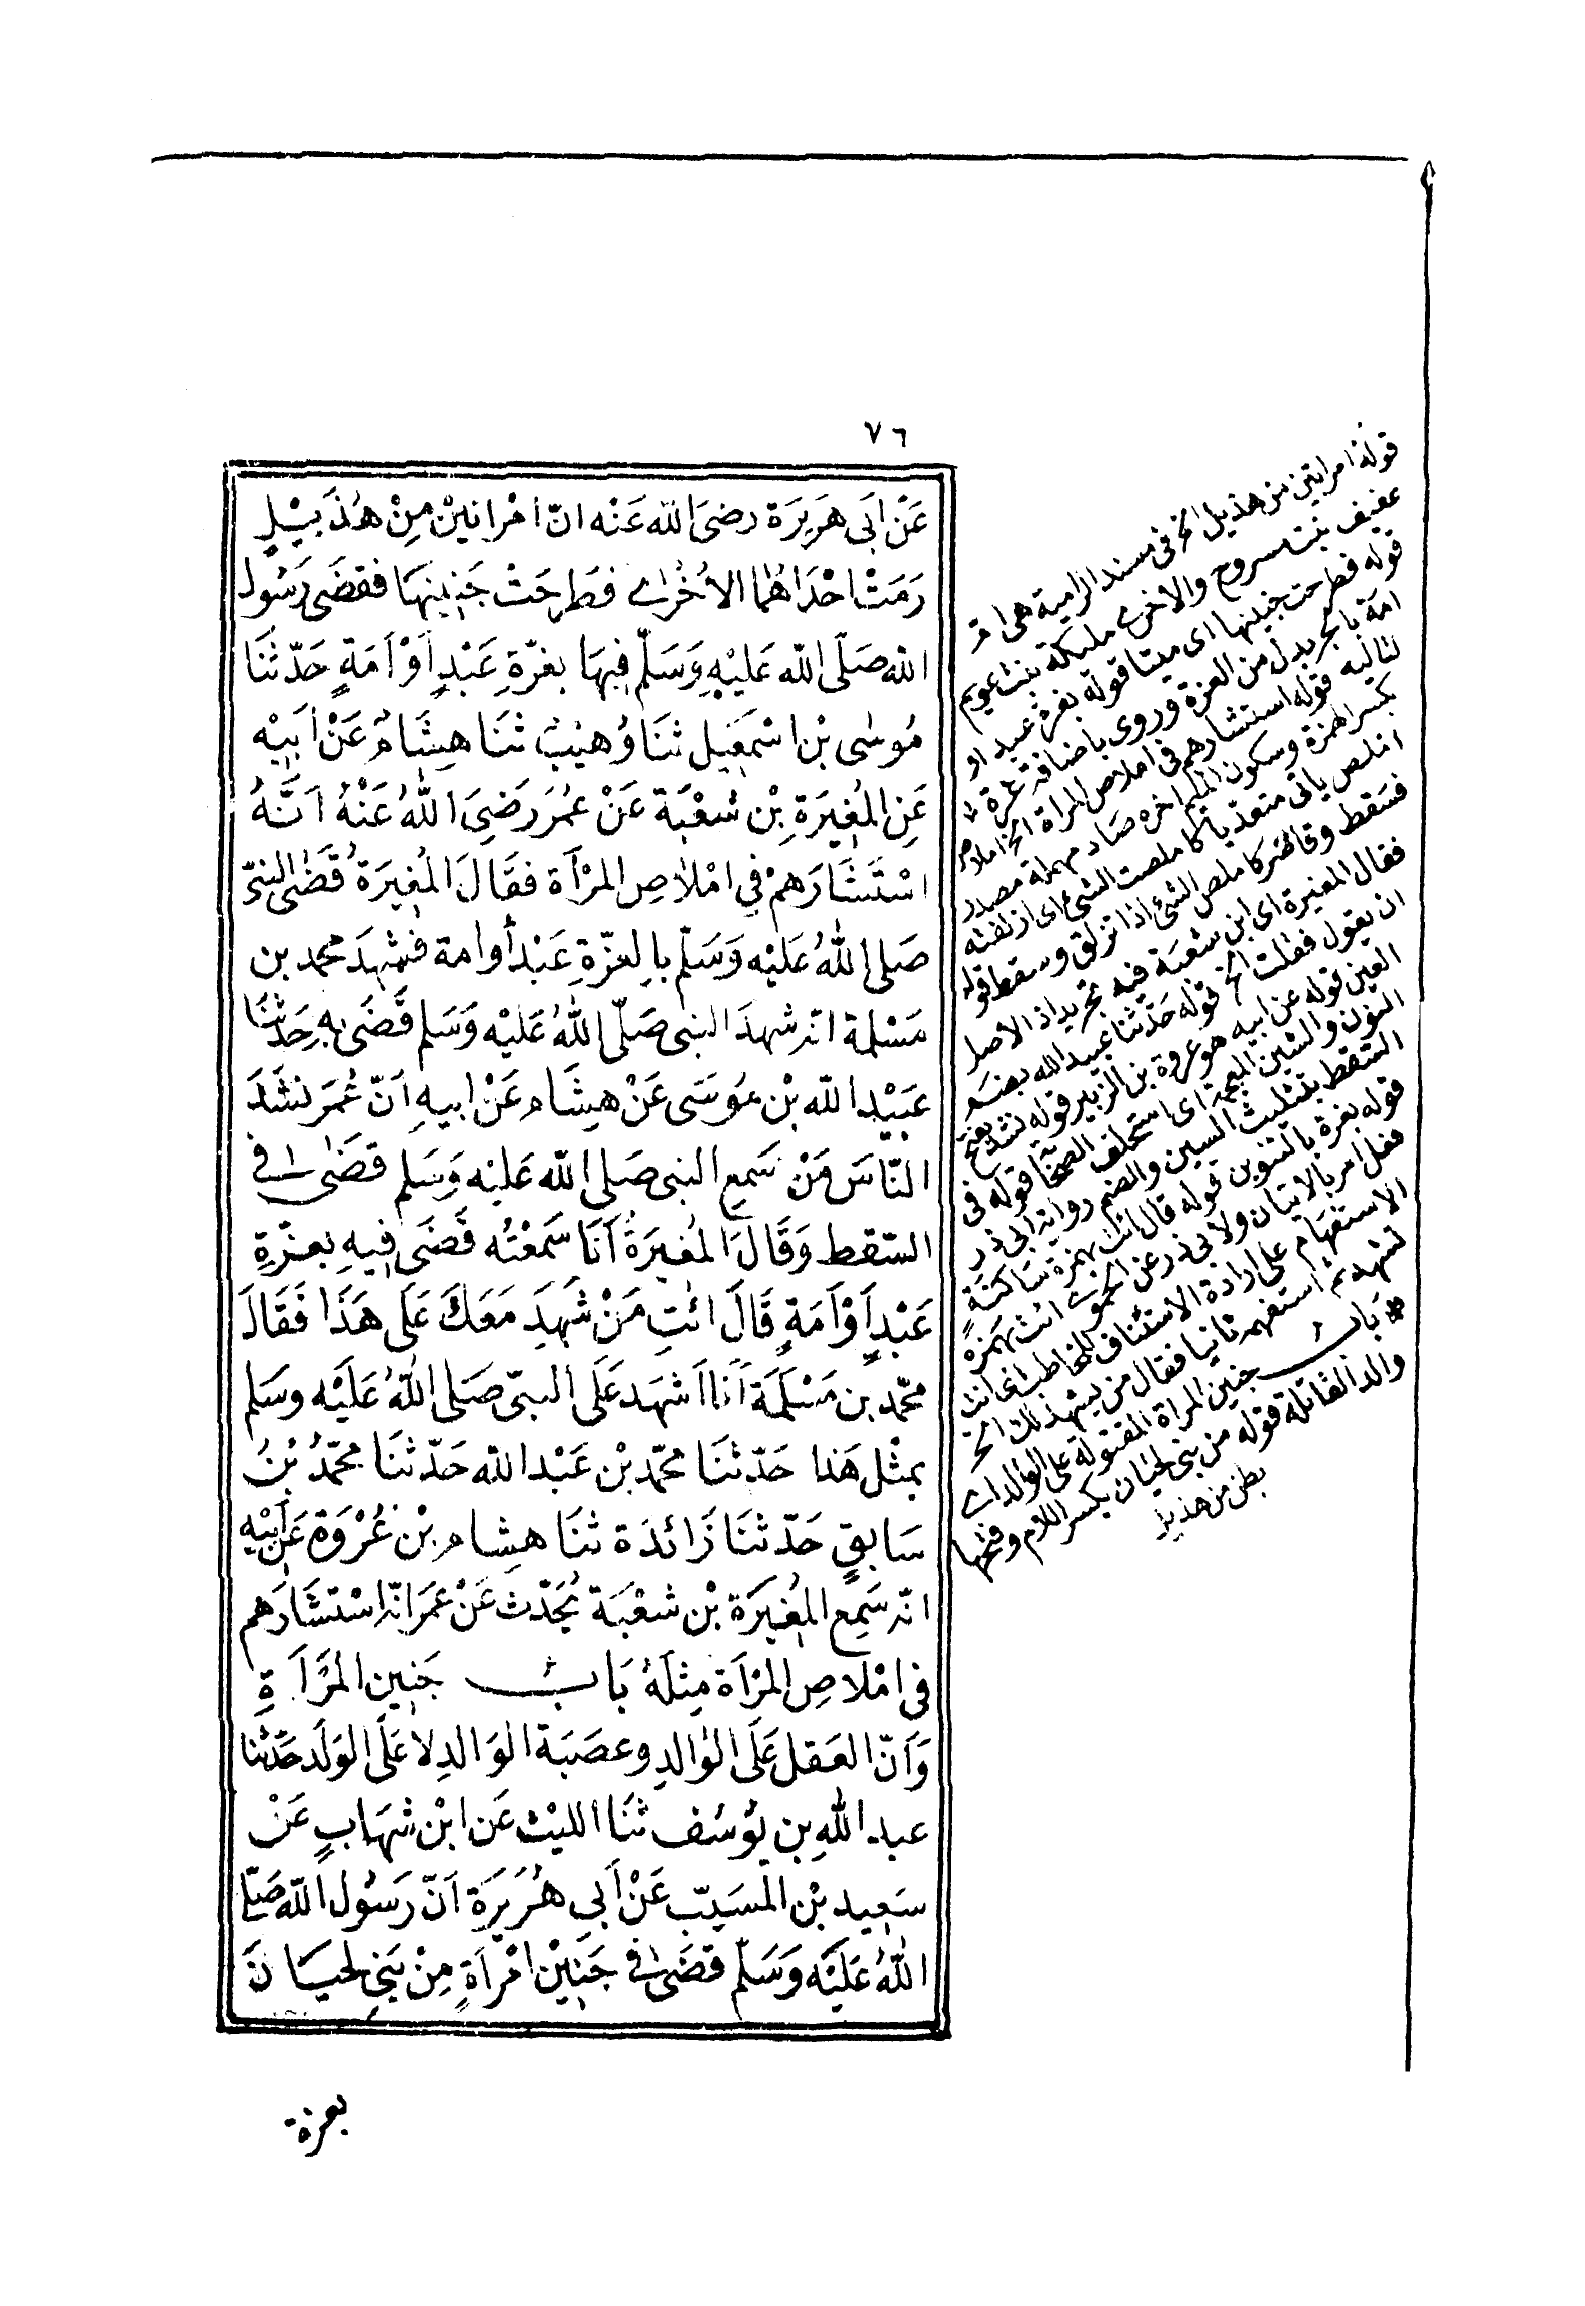 ٧٦
عَنْ اَبى هرَيرَة رضىَ الله عَنْه انّ امْراتينْ مِنْ هُذَ يْلٍ
رَمَتْ احْدَاهُما الاُخْرٰى فطَرحَتْ جَنِينهَا فقضَى رَسُول
الله صَلّى الله عَليْهِ وَسَلّم فِيهَا بغرّةِ عَبْدٍ اَوْ اَمَةٍ حَدّثنَا
مُوسٰى بْن اسْمٰعِيل ثنَا وُهيْبٌ ثنَا هِشَامٌ عَنْ اَبيْه
عَنِ المُغِيرَةِ بْن شُعْبَة عَنْ عُمَرَ رَضِىَ اللّٰهُ عَنْهُ اَنَّهُ
اسْتَشَارَهمْ فِى امْلاصِ المرْأَة فقَالَ المُغيرَةُ قَضَى النبىّ
صَلى اللّٰهُ عَليْه وَسَلّم بالغرّةِ عَبْد أو امة فشهِدَ محمد بن
مَسْلمة انّه شهدَ النبى صَلّى اللّٰهُ عَليْه وَسَلم قَضَى بهِ حَدثنَا
عبَيْد الله بْن مُوسَى عَنْ هِشَام عَنْ ابيهِ اَنّ عُمَر نشَدَ
النّاسَ مَنْ سَمِع النبى صَلى الله عَليْه وَسَلم قضٰى فى
السّقط وَقَالَ المُغيرَةُ أَنَا سَمعْتُه قَضَى فِيهِ بغرّةٍ
عَبْدٍ اَوْ اَمَةٍ قَالَ ائتِ مَنْ شَهدَ مَعَكَ عَلَى هَذَا فَقَالَ
محّمد بن مَسْلمَة أَنَا اَشهَد عَلَى النبىّ صَلى اللّٰهُ عَليْه وسَلم
بمثْل هَذا حَدّثنَا محمّد بْن عَبْد الله حَدّثنَا محمّدُ بْنُ
سَابقٍ حَدّثنَا زَائدَة ثنَا هِشام بْن عُرْوَة عَنْ اَبيْه
انّه سَمِع المُغيرَة بْن شعْبَة يُحَدّث عَنْ عمَرَ انّه اسْتشَارَهم
فى امْلاصِ المرْاَة مِثلَهُ بَابُ جَنِين المرْاَةِ
وَاَنّ العَقل عَلَى الوَالدِ وعصَبَة الوَالدِ لا عَلَى الوَلَد حَدّثنا
عبد اللّٰهِ بن يوُسُف ثنَا الليْث عَن ابْن شِهَابٍ عَنْ
سَعِيد بْن المسَيّب عَنْ أَبى هُرَيرَة اَنّ رَسُول اللّه صَلّى
اللّٰهُ عَليْه وَسَلّم قضَى فى جَنِيْن امْرأةٍ مِنْ بَنى لحيَانَ
بغرة
قوله امراتين من هذيل الخ فى مسند الرامية هى ام
عفيف بنت مسروح والاخرى مليكة بنت عويم
قوله فطرحت جنينها اى ميتا قوله بغرة عبد او
امة بالجر بدل من الغرة وروى باضافة غرة
لتاليه قوله استشارهم فى املاص المراة الخ املاص
بكسر الهمزة وسكون الميم اخره صاد مهملة مصدر
املص ياتى متعديا كاملصت الشئ اى ازلقته
فسقط وقاصرا كاملص الشئ اذا تزلق وسقط قوله
فقال المغيرة اى ابن شعبة فيه تجريد اذ الاصل
ان يقول فقلت الخ قوله حدثنا عبيد الله بضم
العين قوله عن ابيه هو عروة بن الزبير قوله نشد بفتح
النون والشين المعجمة اى استحلف الصحابة قوله فى
السقط بتثليث السين والضم رواية ابى ذر
قوله بغرة بالتنوين قوله قال ائت بهمزة ساكنة
فعل امر بالاتيان ولابى ذر عن الحموى اءنت بهمزة
الاستفهام على ارادة الاستئناف للمخاطب اى انت
تشهد ثم استفهمه ثانيا فقال من يشهد لك الخ
باب جنين المراة المقتولة على الوالد اى
والد القاتلة قوله من بنى لحيان بكسر اللام وفتحها
بطن من هذيل